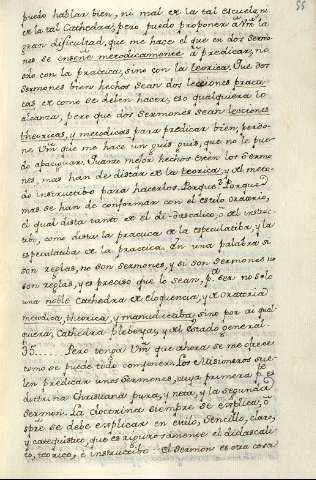 55
puedo hablar bien, ni mal de la tal escuela, ni
de la tal Cathedra, pero puedo proponer à Vm la
gran dificultad, que me hace el que en dos sermo-
nes se enseñe metodicamente à predicar, no
solo con la practica, sino con la teorica. Que dos
sermones bien hechos sean dos lecciones practi-
cas de como se deben hacer, eso qualquiera lo
alcanza, pero que dos Sermones sean lecciones
theoricas, y metodicas para predicar bien, perdo-
ne Vm que me hace un quis quis, que no le pue-
do apaciguar. Quanto mejor hechos esten los Sermo-
nes, mas han de distar de la teorica, y del meto-
do instructibo para hacerlos. Porque? Porque
mas se han de conformar con el estilo oratorio,
el qual dista tanto de el didascalico, ò del instruc-
tibo, como dista la practica de la especulatiba, y la
especulatiba de la practica. En una palabra si
son reglas, no son sermones, y si son Sermones no
son reglas, y es preciso que lo sean, pa ser no solo
una noble Cathedra de eloquencia, y de oratoria
metodica, theorica, y manuductiba, sino por ai qual-
quiera, Cathedra plebeya, y del estado general.
35. Pero tenga Vm que ahora se me ofrece
como se puede todo componer. Los Misioneros sue-
len predicar unos Sermones, cuya primera pte es
doctrina Christiana pura, y neta, y la segunda
Sermon. La doctrina siempre se explica, ò
spre se debe explicar en estilo, sencillo, claro,
y catequistico, que es rigurosamente el didascali-
co, teorico, è instructibo. El Sermon es otra cosa